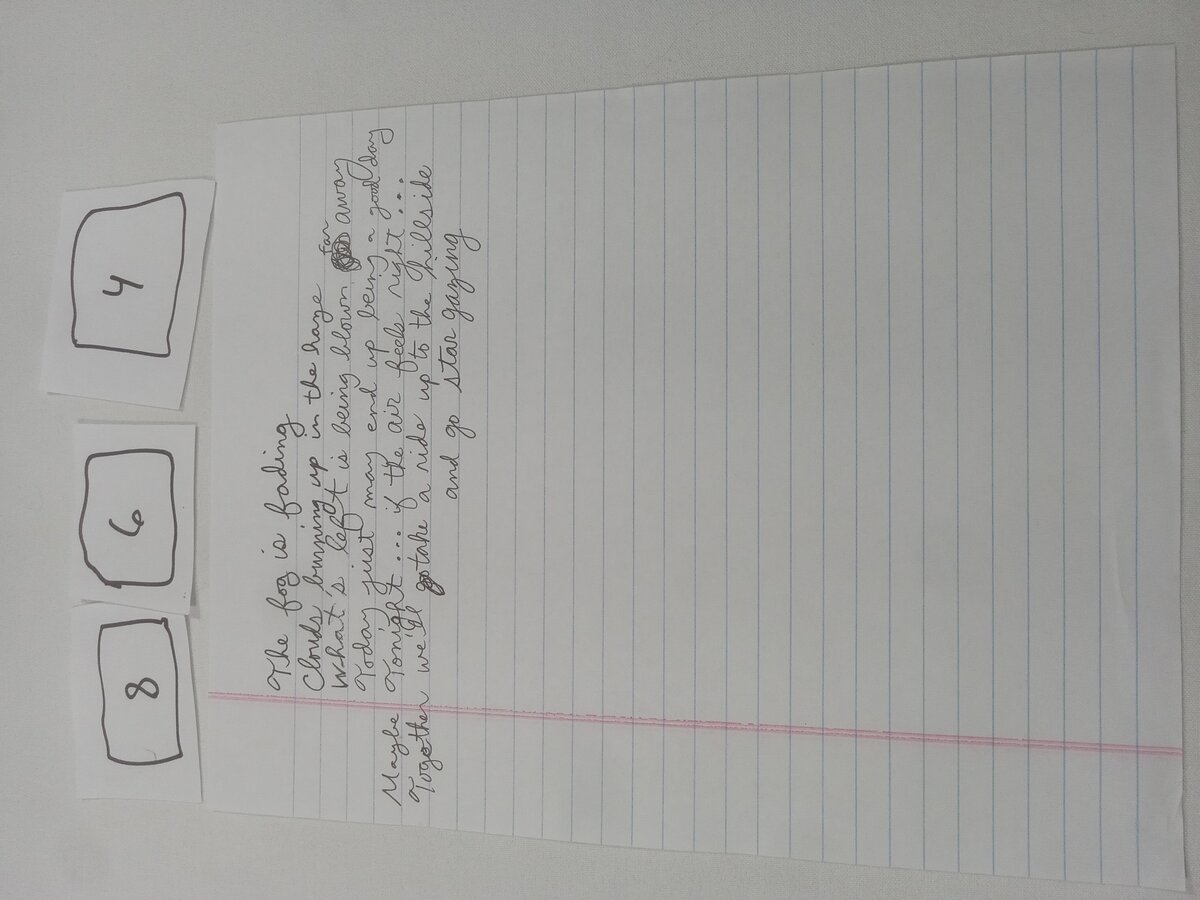 8 6 4
The fog is fading
Clouds burning up in the haze
What's left is being blown far away
Today just may end up being a good day
Maybe Tonight ... if the air feels right ...
Togother we'll take a ride up to the hillside
and go star gazing